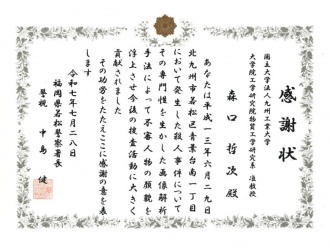 感謝状
国立大学法人九州工業大学
大学院工学研究院物質工学研究系 准教授
森口哲次殿
あなたは平成一三年六月二九日
北九州市若松区青葉台南一丁目
において発生した殺人事件について
その専門性を生かした画像解析
手法によって不審人物の顔貌を
浮上させ今後の捜査活動に大きく
貢献されました
その功労をたたえここに感謝の意を表
します
令和七年七月二八日
福岡県若松警察署長
警視 中島健